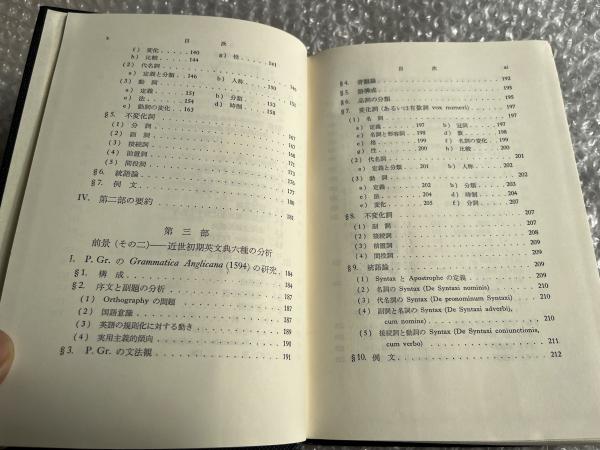 x 目 次
( f ) 変化 . . . . . 140 g ) 格 . . . . . 141
h ) 比較 . . . . . 144
( 2 ) 代名詞 . . . . . 146
a ) 定義と分類 . . 146 b ) 人称 . . . . . 150
( 3 ) 動 詞 . . . . . 151
a ) 定義 . . . . . 151 b ) 分類 . . . . . 153
c ) 法 . . . . . 154 d ) 時制 . . . . . 158
e ) 動詞の変化 . . 163
§ 5. 不変化詞 . . . . . 167
( 1 ) 分 詞 . . . . . 167
( 2 ) 副 詞 . . . . . 168
( 3 ) 接続詞 . . . . . 171
( 4 ) 前置詞 . . . . . 173
( 5 ) 間投詞 . . . . . 176
§ 6. 統語論 . . . . . 177
§ 7. 例 文 . . . . . 180
IV. 第二部の要約 . . . . . 181
第 三 部
前景 (その二)——近世初期英文典六種の分析
I. P. Gr. の Grammatica Anglicana (1594) の研究 . 184
§ 1. 構 成 . . . . . 184
§ 2. 序文と副題の分析 . . . . . 187
( 1 ) Orthography の問題 . . . . . 187
( 2 ) 国語意識 . . . . . 187
( 3 ) 英語の規則化に対する動き . . . . . 189
( 4 ) 実用主義的傾向 . . . . . 190
§ 3. P. Gr. の文法観 . . . . . 191
目 次 xi
§ 4. 音韻論 . . . . . 192
§ 5. 語構成 . . . . . 195
§ 6. 品詞の分類 . . . . . 195
§ 7. 変化詞 (あるいは有数詞 vox numeri) . . . . . 197
( 1 ) 名 詞 . . . . . 197
a ) 定義 . . . . . 197 b ) 冠詞 . . . . . 197
c ) 名詞と形容詞 . 198 d ) 数 . . . . . 198
e ) 格 . . . . . 199 f ) 名詞の変化 . . 199
g ) 性 . . . . . 200 h ) 比較 . . . . . 200
( 2 ) 代名詞 . . . . . 201
a ) 定義と分類 . . 201 b ) 人称 . . . . . 201
( 3 ) 動 詞 . . . . . 202
a ) 定義 . . . . . 202 b ) 分類 . . . . . 203
c ) 法 . . . . . 204 d ) 時制 . . . . . 204
e ) 変化 . . . . . 205 f ) 分詞 . . . . . 207
§ 8. 不変化詞 . . . . . 207
( 1 ) 副 詞 . . . . . 207
( 2 ) 接続詞 . . . . . 208
( 3 ) 前置詞 . . . . . 209
( 4 ) 間投詞 . . . . . 209
§ 9. 統語論 . . . . . 209
( 1 ) Syntax と Apostrophe の定義 . . . . . 209
( 2 ) 名詞の Syntax (De Syntaxi nominis) . . . . . 210
( 3 ) 代名詞の Syntax (De pronominum Syntaxi) . . 210
( 4 ) 副詞と名詞の Syntax (De Syntaxi adverbi,
cum nomine) . . . . . 210
( 5 ) 接続詞と動詞の Syntax (De Syntaxi coniunctionis,
cum verbo) . . . . . 211
§ 10. 例 文 . . . . . 212